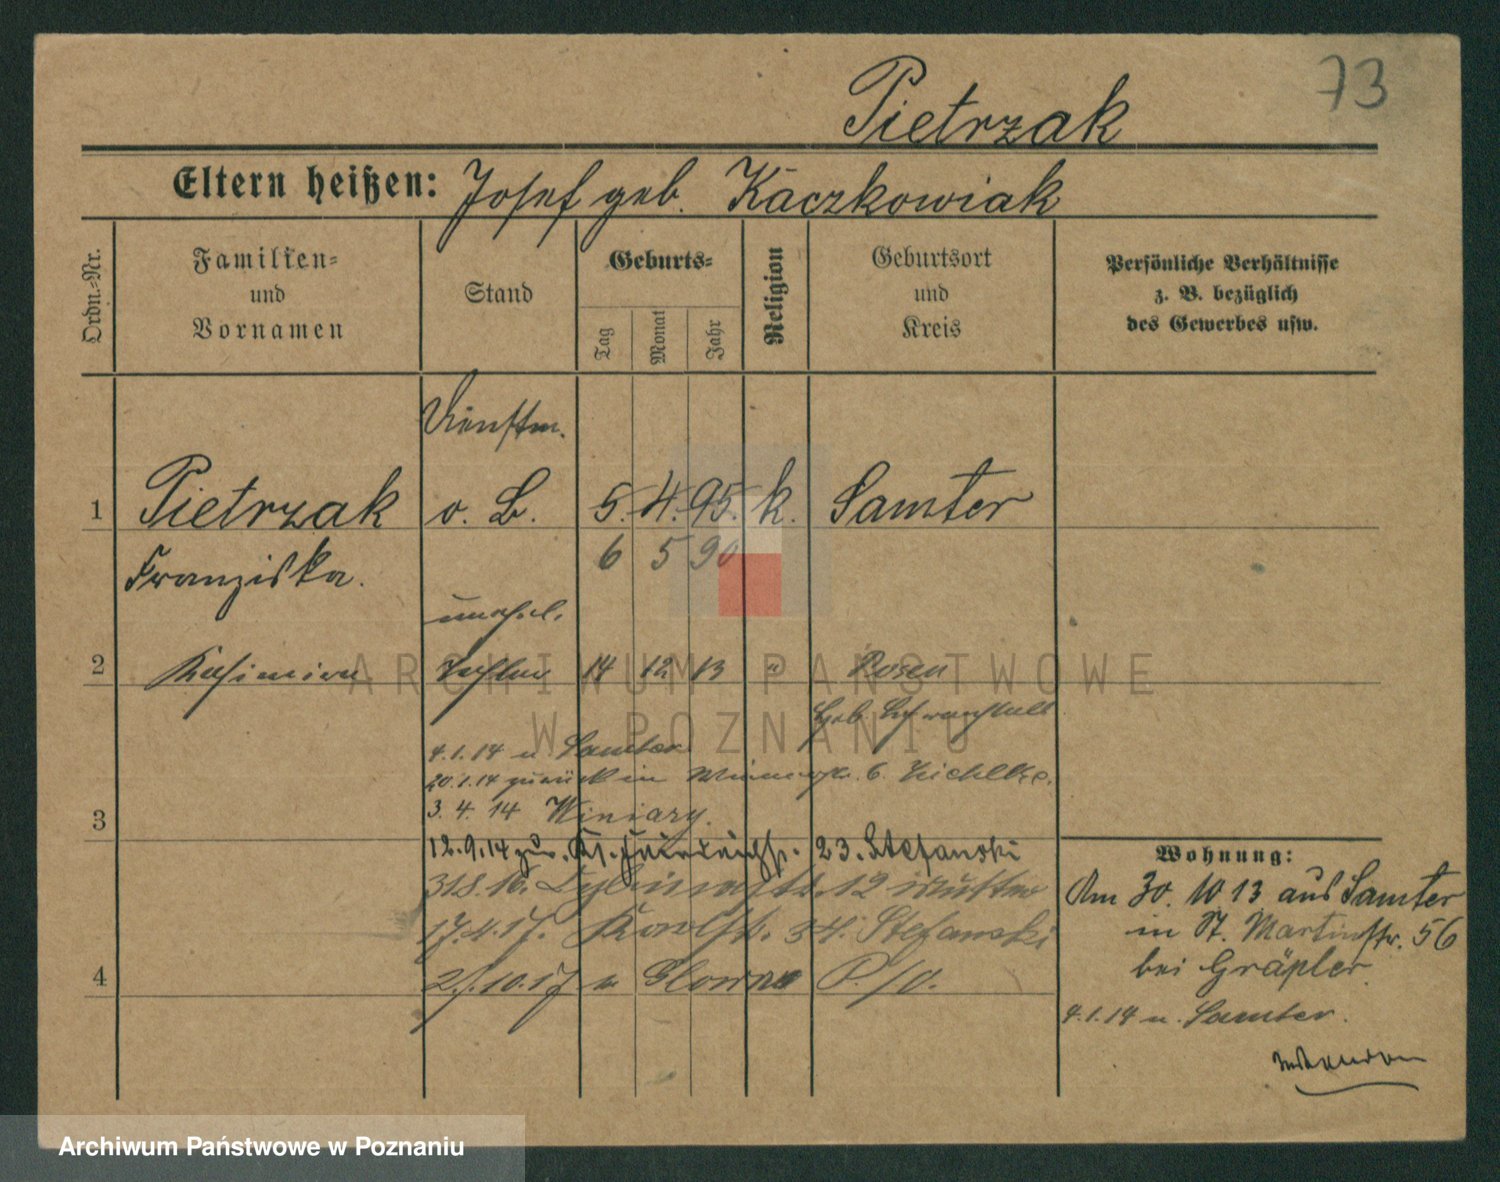 73
Pietrzak
Eltern heißen: Josef geb. Kaczkowiak
Ordn.=Nr.
Familien=
und
Vornamen
Stand
Geburts=
Tag
Monat
Jahr
Religion
Geburtsort
und
Kreis
Persönliche Verhältnisse
z. B. bezüglich
des Gewerbes usw.
Dienstm.
1 Pietrzak o. B. 5. 4. 95. k. Samter
6 5 90
Franziska.
unehel.
2 Kasimira Tochter 14 12 13 " Posen
4.1.14 n. Samter
20.1.14 zurück in
3. 4. 14 Winiary.
3
12.9.14 zur. 23. Stefanski
31.8.16. 12
17.4.17. 34. Stefanski
4
10.17 n P./O.
Wohnung:
Am 30. 10 13 aus Samter
in St. Martinstr. 56
bei Gräpler
4.1.14 n. Samter.
ARCHIWUM PAŃSTWOWE
W POZNANIU
Archiwum Państwowe w Poznaniu